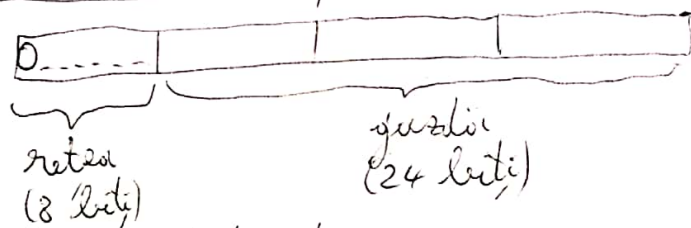 0
rețea
(8 biți)
gazdă
(24 biți)